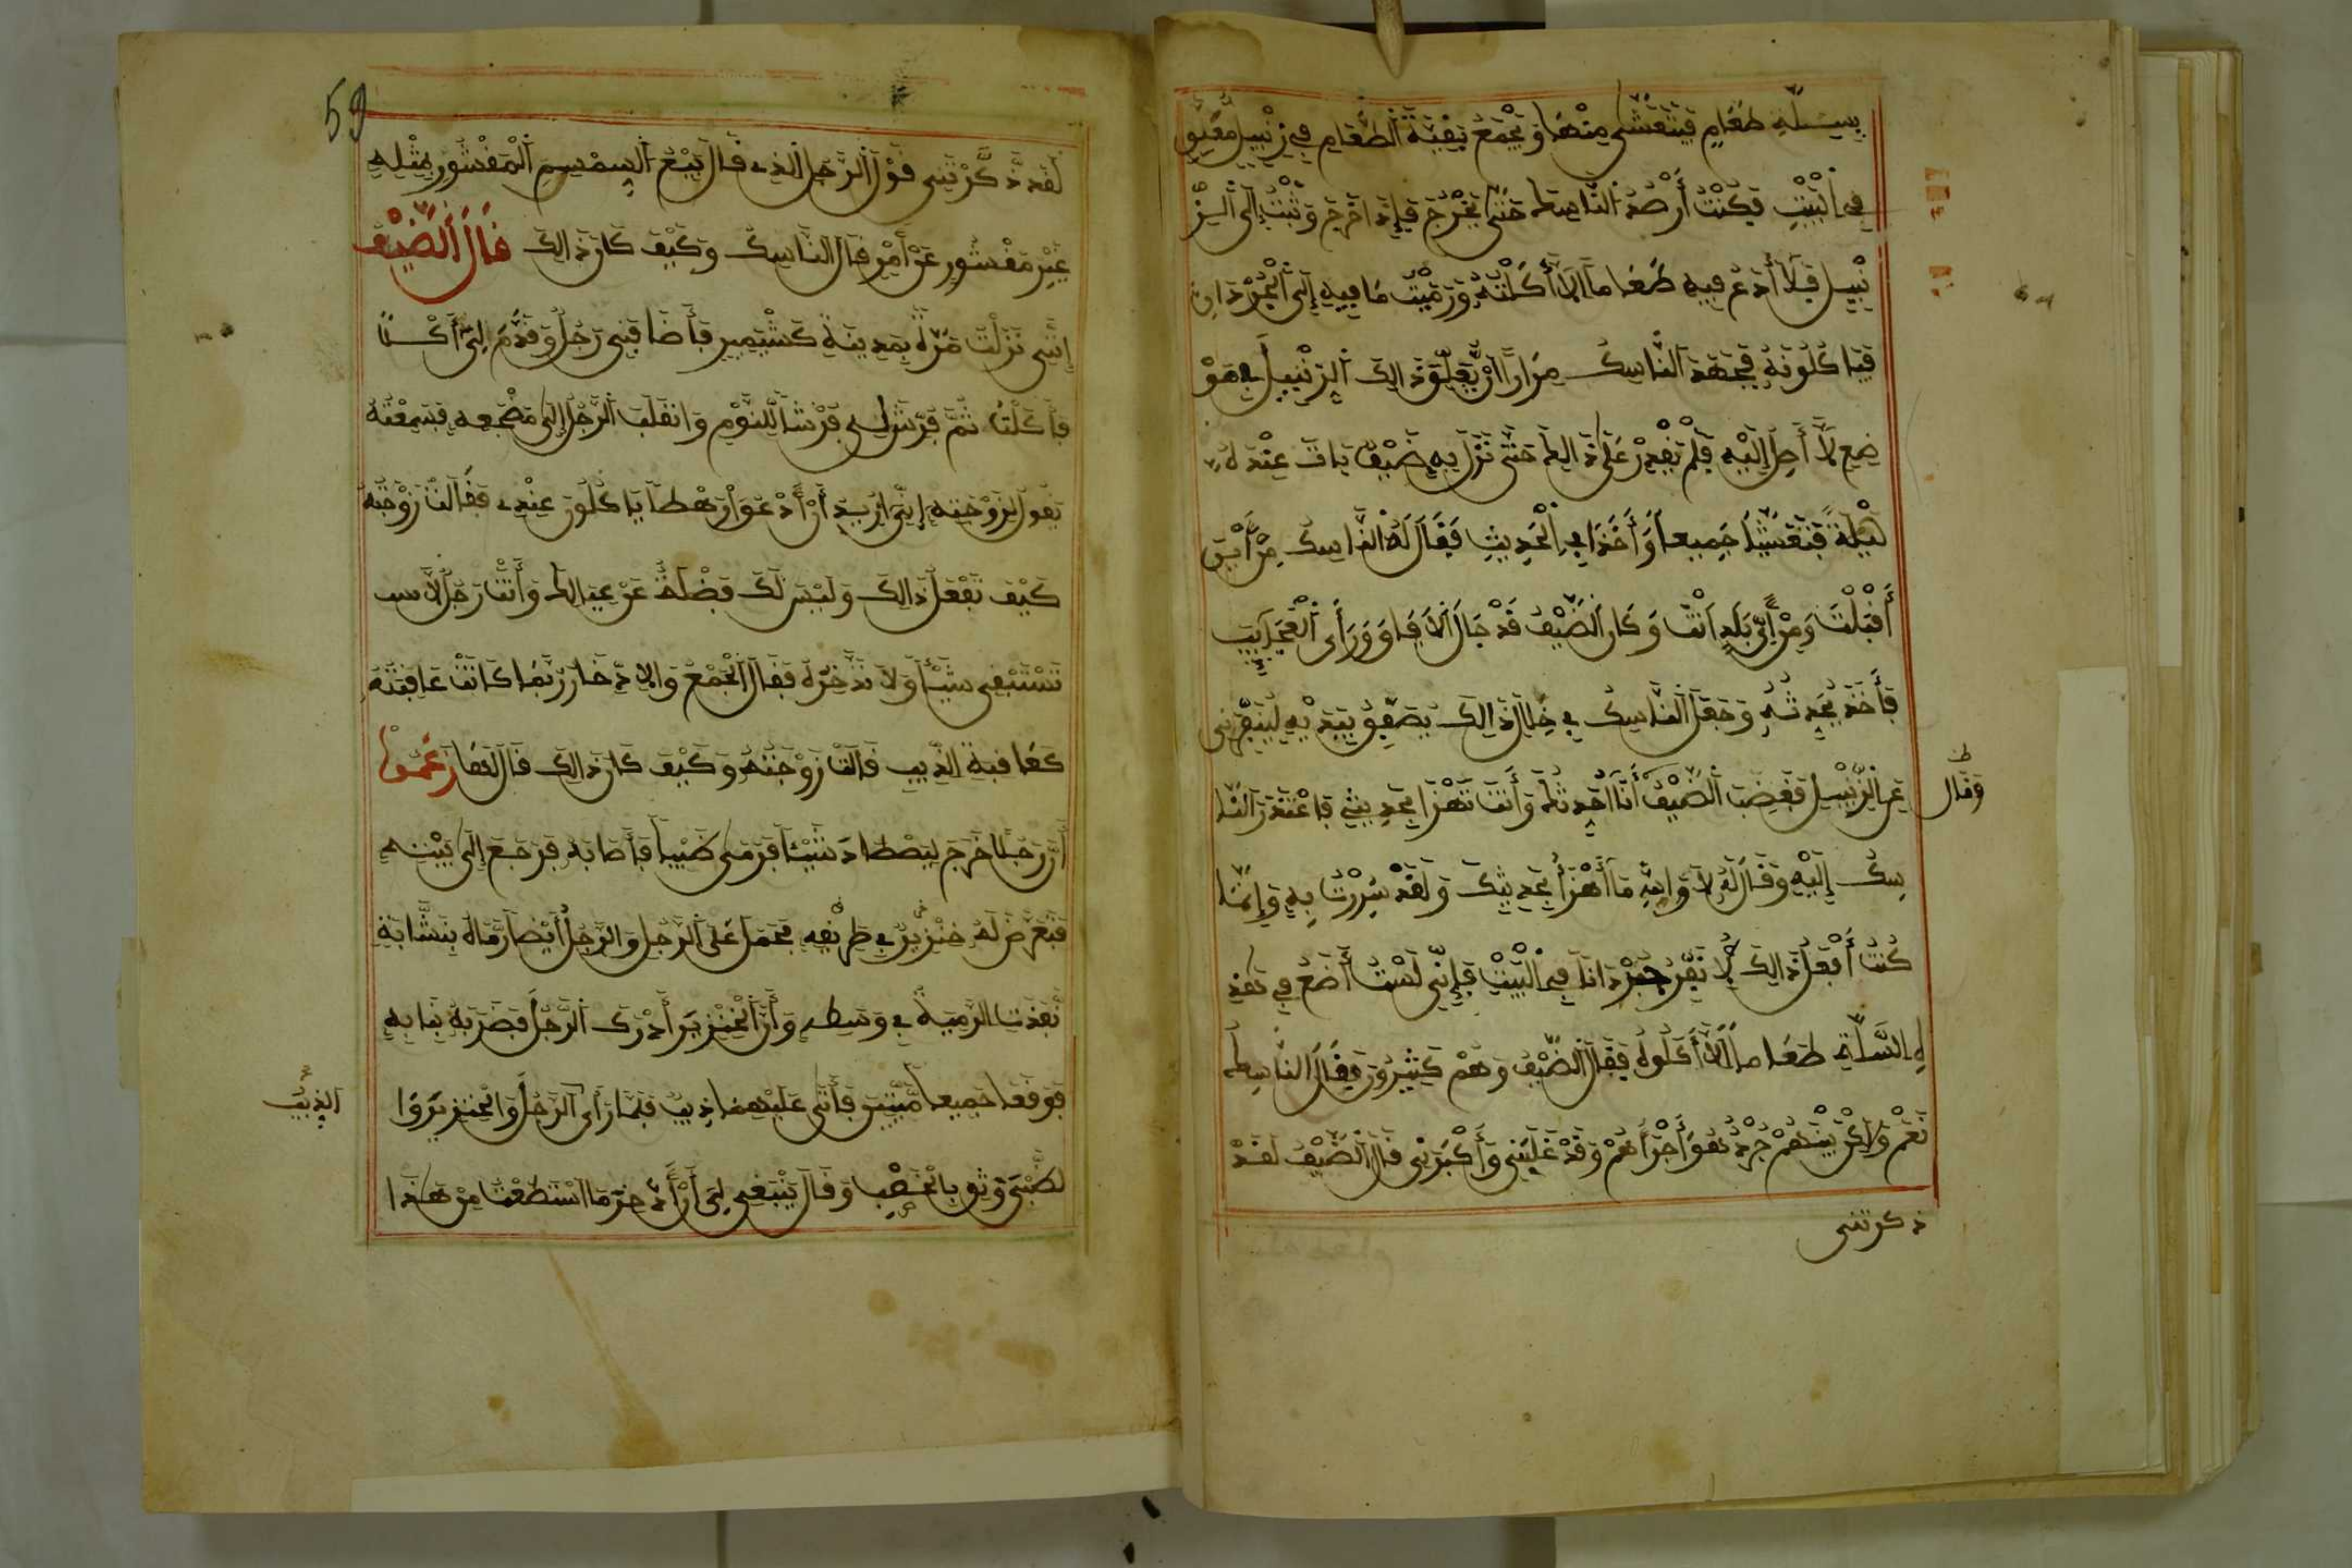 بِسِلَّةِ طَعَامٍ فَيَتَعَشَّى مِنْهَا وَيَجْمَعُ بَقِيَّةَ الطَّعَامِ فِي زِنْبِيلٍ مُعَلَّقٍ
فِي الْبَيْتِ فَكُنْتُ أَرْصُدُ النَّاسِكَ حَتَّى يَخْرُجَ فَإِذَا خَرَجَ وَثَبْتُ إِلَى الزِّ
نْبِيلِ فَلَا أَدَعُ فِيهِ طَعَامًا إِلَّا أَكَلْتُهُ وَرَمَيْتُ مَا فِيهِ إِلَى الْجُرْذَانِ
فَيَاكُلُونَهُ فَجَهَدَ النَّاسِكُ مِرَارًا أَنْ يُعَلِّقَ ذَالِكَ الزِّنْبِيلَ فِي مَوْ
ضِعٍ لَا أَصِلُ إِلَيْهِ فَلَمْ يَقْدِرْ عَلَى ذَالِكَ حَتَّى نَزَلَ بِهِ ضَيْفٌ بَاتَ عِنْدَهُ
لَيْلَةً فَتَعَشَّيَا جَمِيعًا وَأَخَذَا فِي الْحَدِيثِ فَقَالَ لَهُ النَّاسِكُ مِنْ أَيْنَ
أَقْبَلْتَ وَمِنْ أَيِّ بَلَدٍ أَنْتَ وَكَانَ الضَّيْفُ قَدْ جَالَ الْآفَاقَ وَرَأَى الْعَجَايِبَ
فَأَخَذَ يُحَدِّثُهُ وَجَعَلَ النَّاسِكُ فِي خِلَالِ ذَالِكَ يُصَفِّقُ بِيَدَيْهِ لِيُنَفِّرَنِي
عَنِ الزِّنْبِيلِ فَغَضِبَ الضَّيْفُ أَنَا أُحَدِّثُكَ وَأَنْتَ تَهْزَأُ بِحَدِيثِي فَاعْتَذَرَ النَّا
وَقَال
سِكُ إِلَيْهِ وَقَالَ لَهُ لَا وَاللَّهِ مَا أَهْزَأُ بِحَدِيثِكَ وَلَقَدْ سُرِرْتُ بِهِ وَإِنَّمَا
كُنْتُ أَفْعَلُ ذَالِكَ لِأُنَفِّرَ جُرْذَانًا فِي الْبَيْتِ فَإِنِّي لَسْتُ أَضَعُ فِي هَذِ
هِ السَّلَّةِ طَعَامًا إِلَّا أَكَلُوهُ فَقَالَ الضَّيْفُ وَهُمْ كَثِيرُونَ فَقَالَ النَّاسِكُ
نَعَمْ وَلَاكِنْ بَيْنَهُمْ جُرْذٌ هُوَ أَجْرَأُهُمْ وَقَدْ غَلَبَنِي وَأَكْبَرَنِي قَالَ الضَّيْفُ لَقَدْ
ذكرتني
59
لَقَدْ ذَكَّرْتَنِي قَوْلَ الرَّجُلِ الَّذِي قَالَ بَيْعُ السِّمْسِمِ الْمَقْشُورِ بِمِثْلِهِ
غَيْرِ مَقْشُورٍ عَنْ أَمْرٍ قَالَ النَّاسِكُ وَكَيْفَ كَانَ ذَالِكَ قَالَ الضَّيْفُ
إِنَّنِي نَزَلْتُ مَرَّةً بِمَدِينَةِ كَشْتَمِيرَ فَأَضَافَنِي رَجُلٌ وَقَدَّمَ لِي أَكْلًا
فَأَكَلْتُ ثُمَّ فَرَشَ لِي فَرْشًا لِلنَّوْمِ وَانْقَلَبَ الرَّجُلُ إِلَى مَضْجَعِهِ فَسَمِعْتُهُ
يَقُولُ لِزَوْجَتِهِ إِنِّي أُرِيدُ أَنْ أَدْعُوَ رَهْطًا يَاكُلُونَ عِنْدِي فَقَالَتْ زَوْجَتُهُ
كَيْفَ تَفْعَلُ ذَالِكَ وَلَيْسَ لَكَ فَضْلَةٌ عَنْ عِيَالِكَ وَأَنْتَ رَجُلٌ لَا
تَسْتَبْقِي شَيْئًا وَلَا تَدَّخِرُهُ فَقَالَ الْجَمْعُ وَالِادِّخَارُ رُبَّمَا كَانَتْ عَاقِبَتُهُ
كَعَاقِبَةِ الذِّيبِ قَالَتْ زَوْجَتُهُ وَكَيْفَ كَانَ ذَالِكَ قَالَ لَهَا زَعَمُوا
أَنَّ رَجُلًا خَرَجَ لِيَصْطَادَ شَيْئًا فَرَمَى ظَبْيًا فَأَصَابَهُ فَرَجَعَ إِلَى بَيْتِهِ
فَتَعَرَّضَ لَهُ خِنْزِيرٌ فِي طَرِيقِهِ فَحَمَلَ عَلَى الرَّجُلِ وَالرَّجُلُ أَيْضًا رَمَاهُ بِنُشَّابَةٍ
نَفَذَتِ الرَّمْيَةُ فِي وَسَطِهِ وَأَنَّ الْخِنْزِيرَ أَدْرَكَ الرَّجُلَ فَضَرَبَهُ بِنَابِهِ
فَوَقَعَا جَمِيعًا مَيِّتَيْنِ فَأَتَى عَلَيْهِمَا ذِيبٌ فَلَمَّا رَأَى الرَّجُلَ وَالْخِنْزِيرَ وَا
الذِّيبُ
لظَّبْيَ وَثِقَ بِالْخِصْبِ وَقَالَ يَنْبَغِي لِي أَنْ أَدَّخِرَ مَا اسْتَطَعْتُ مِنْ هَذَا